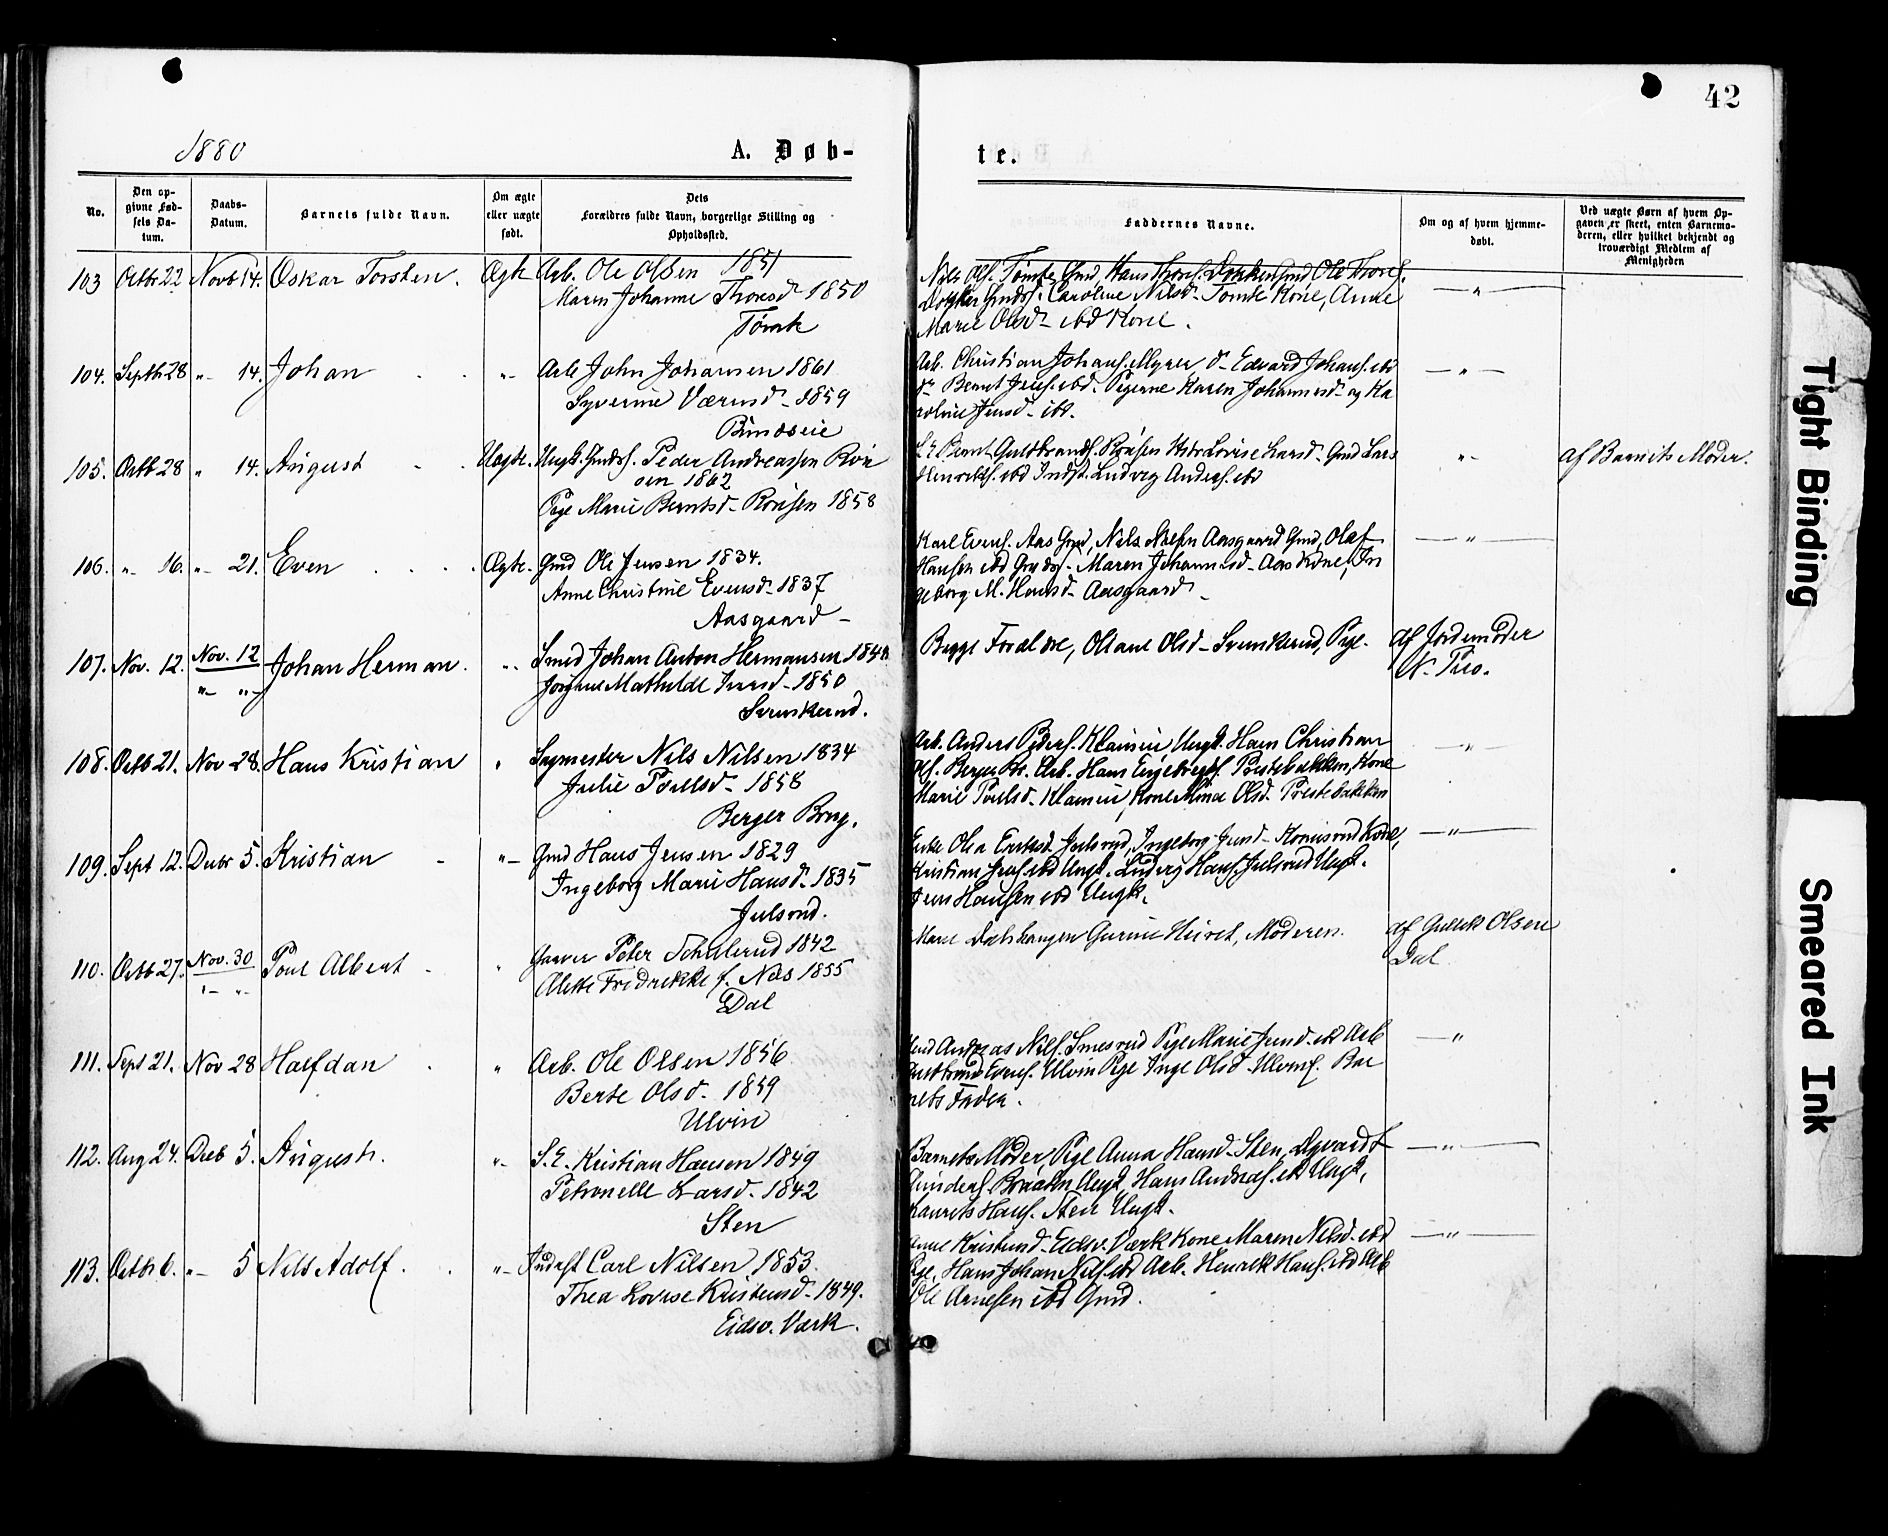 42
1880
A. Døb-
te.
No.
Den op-
givne Fød-
sels Da-
tum.
Daabs-
Datum.
Barnets fulde Navn.
Om ægte
eller uægte
født.
Dets
Forældres fulde Navn, borgerlige Stilling og
Opholdssted.
Faddernes Navne.
Om og af hvem hjemme-
døbt.
Ved uægte Børn af hvem Op-
gaven er skeet, enten Barnemo-
deren, eller hvilket bekjendt og
troværdigt Medlem af
Menigheden
103 Octbr 22 Novb 14. Oskar Torsten. Ægte Arb. Ole Olsen 1851
Maren Johanne Thoresd 1850
Tømte
Nils Olss. Tømte Gmd Hans Thoress. Dokken Gmd, Ole Thoress.
Dokken Caroline Nilsd- Tømte Kone, Anne
Marie Olsd- ibd Kone.
— " —
104. Septb 28 "- 14. Johan "- Arb John Johansen 1861
Syverine 1859
Arb. Christian Johans. Myrer d- Edvard Johans. ibd
do Bernt Jens. ibd. Pigerne Karen Johannesd- og Ka
roline Jensd- ibd.
— " —
105. Octb 28 " 14. August Uægte. Ungk. Peder Andreassen Røi
sen 1862
Pige Marie Berntsd- Røisen 1858
Bernt Guldbrands. Røisen Lovise Larsd- Gmd Lars
ibd Indst. Ludvig Anders. ibd
"-
af Barnets Moder.
106. "- 16. "- 21. Even Ægte. Gmd Ole Jensen 1834.
Anne Christine Evensd- 1837
Aasgaard -
Karl Evens. Aas Gmd, Nils Nilsen Aasgaard Gmd, Olaf
Hansen ibd Maren Johannesd- Aas Kone, In
geborg M. Hansd- Aasgaard
— " —
107. Nov. 12. Nov. 12 Johan Herman. "- Smed Johan Anton Hermansen
"- "-
Mathilde 1850
Svenskerud.
Begge Forældre, Oleane Olsd- Svenskerud, Pige.
af Jordemoder
N.
108. Octb 21. Nov 28. Hans Kristian " Sagmester Nils Nilsen 1834
Julie Poulsd- 1858
Berger Brug.
Arb. Anders Peders. Ungk. Hans Christian
Ols. Berger Br. Arb. Hans Engebregts. Prestebakken, Kone
Marie Poulsd- Kone Mina Olsd- Prestebakken
— " —
109. Sept 12. Decbr 5. Kristian "- Gmd Hans Jensen 1829
Ingeborg Marie Hansd- 1835
Julsrud.
Enke Olea Julsrud, Ingeborg Jensd- Kone,
Kristian ibd Ungk. Ludvig Hans. Julsrud Ungk.
Jens Hansen ibd Ungk.
— " —
110. Octb 27. Nov. 30 Poul Albert " Garver Peter Schulerud 1842
"- "-
Alette Fredrikke f. Næs 1855
Dal
Marie Dalshaugen Gurine Moderen.
af Gullik Olsen
Dal
111. Sept 21. Nov 28 Halfdan " Arb. Ole Olsen 1856
Berte Olsd- 1859
Ulvin
Andreas Nils. Smesrud Pige Marie Jensd- ibd Arb
Guldbrand Evens. Ulvin Pige Inge Olsd- Bar
nets Fader.
— "
112. Aug 24. Decb 5. August. "- S.E. Kristian Hansen 1849
Petronelle Larsd- 1842
Sten
Barnets Moder, Pige Anna Hansd- Sten,
Braaten Ungk, Hans Andreas. ibd Ungk,
Laurits Hans. Sten Ungk.
— " —
113. Octb 6. "- 5 Nils Adolf. "- Indrst Carl Nilsen 1853.
Thea Lovise Kristensd- 1849.
Eidsv. Værk.
Anne Kristensd- Eidsv. Værk Kone Maren Nilsd- ibd
Pige, Hans Johan Nils. ibd Arb. Henrik Hans. ibd Arb
Ole Arnesen ibd Gmd.
— " —
Tight Binding
Smeared Ink